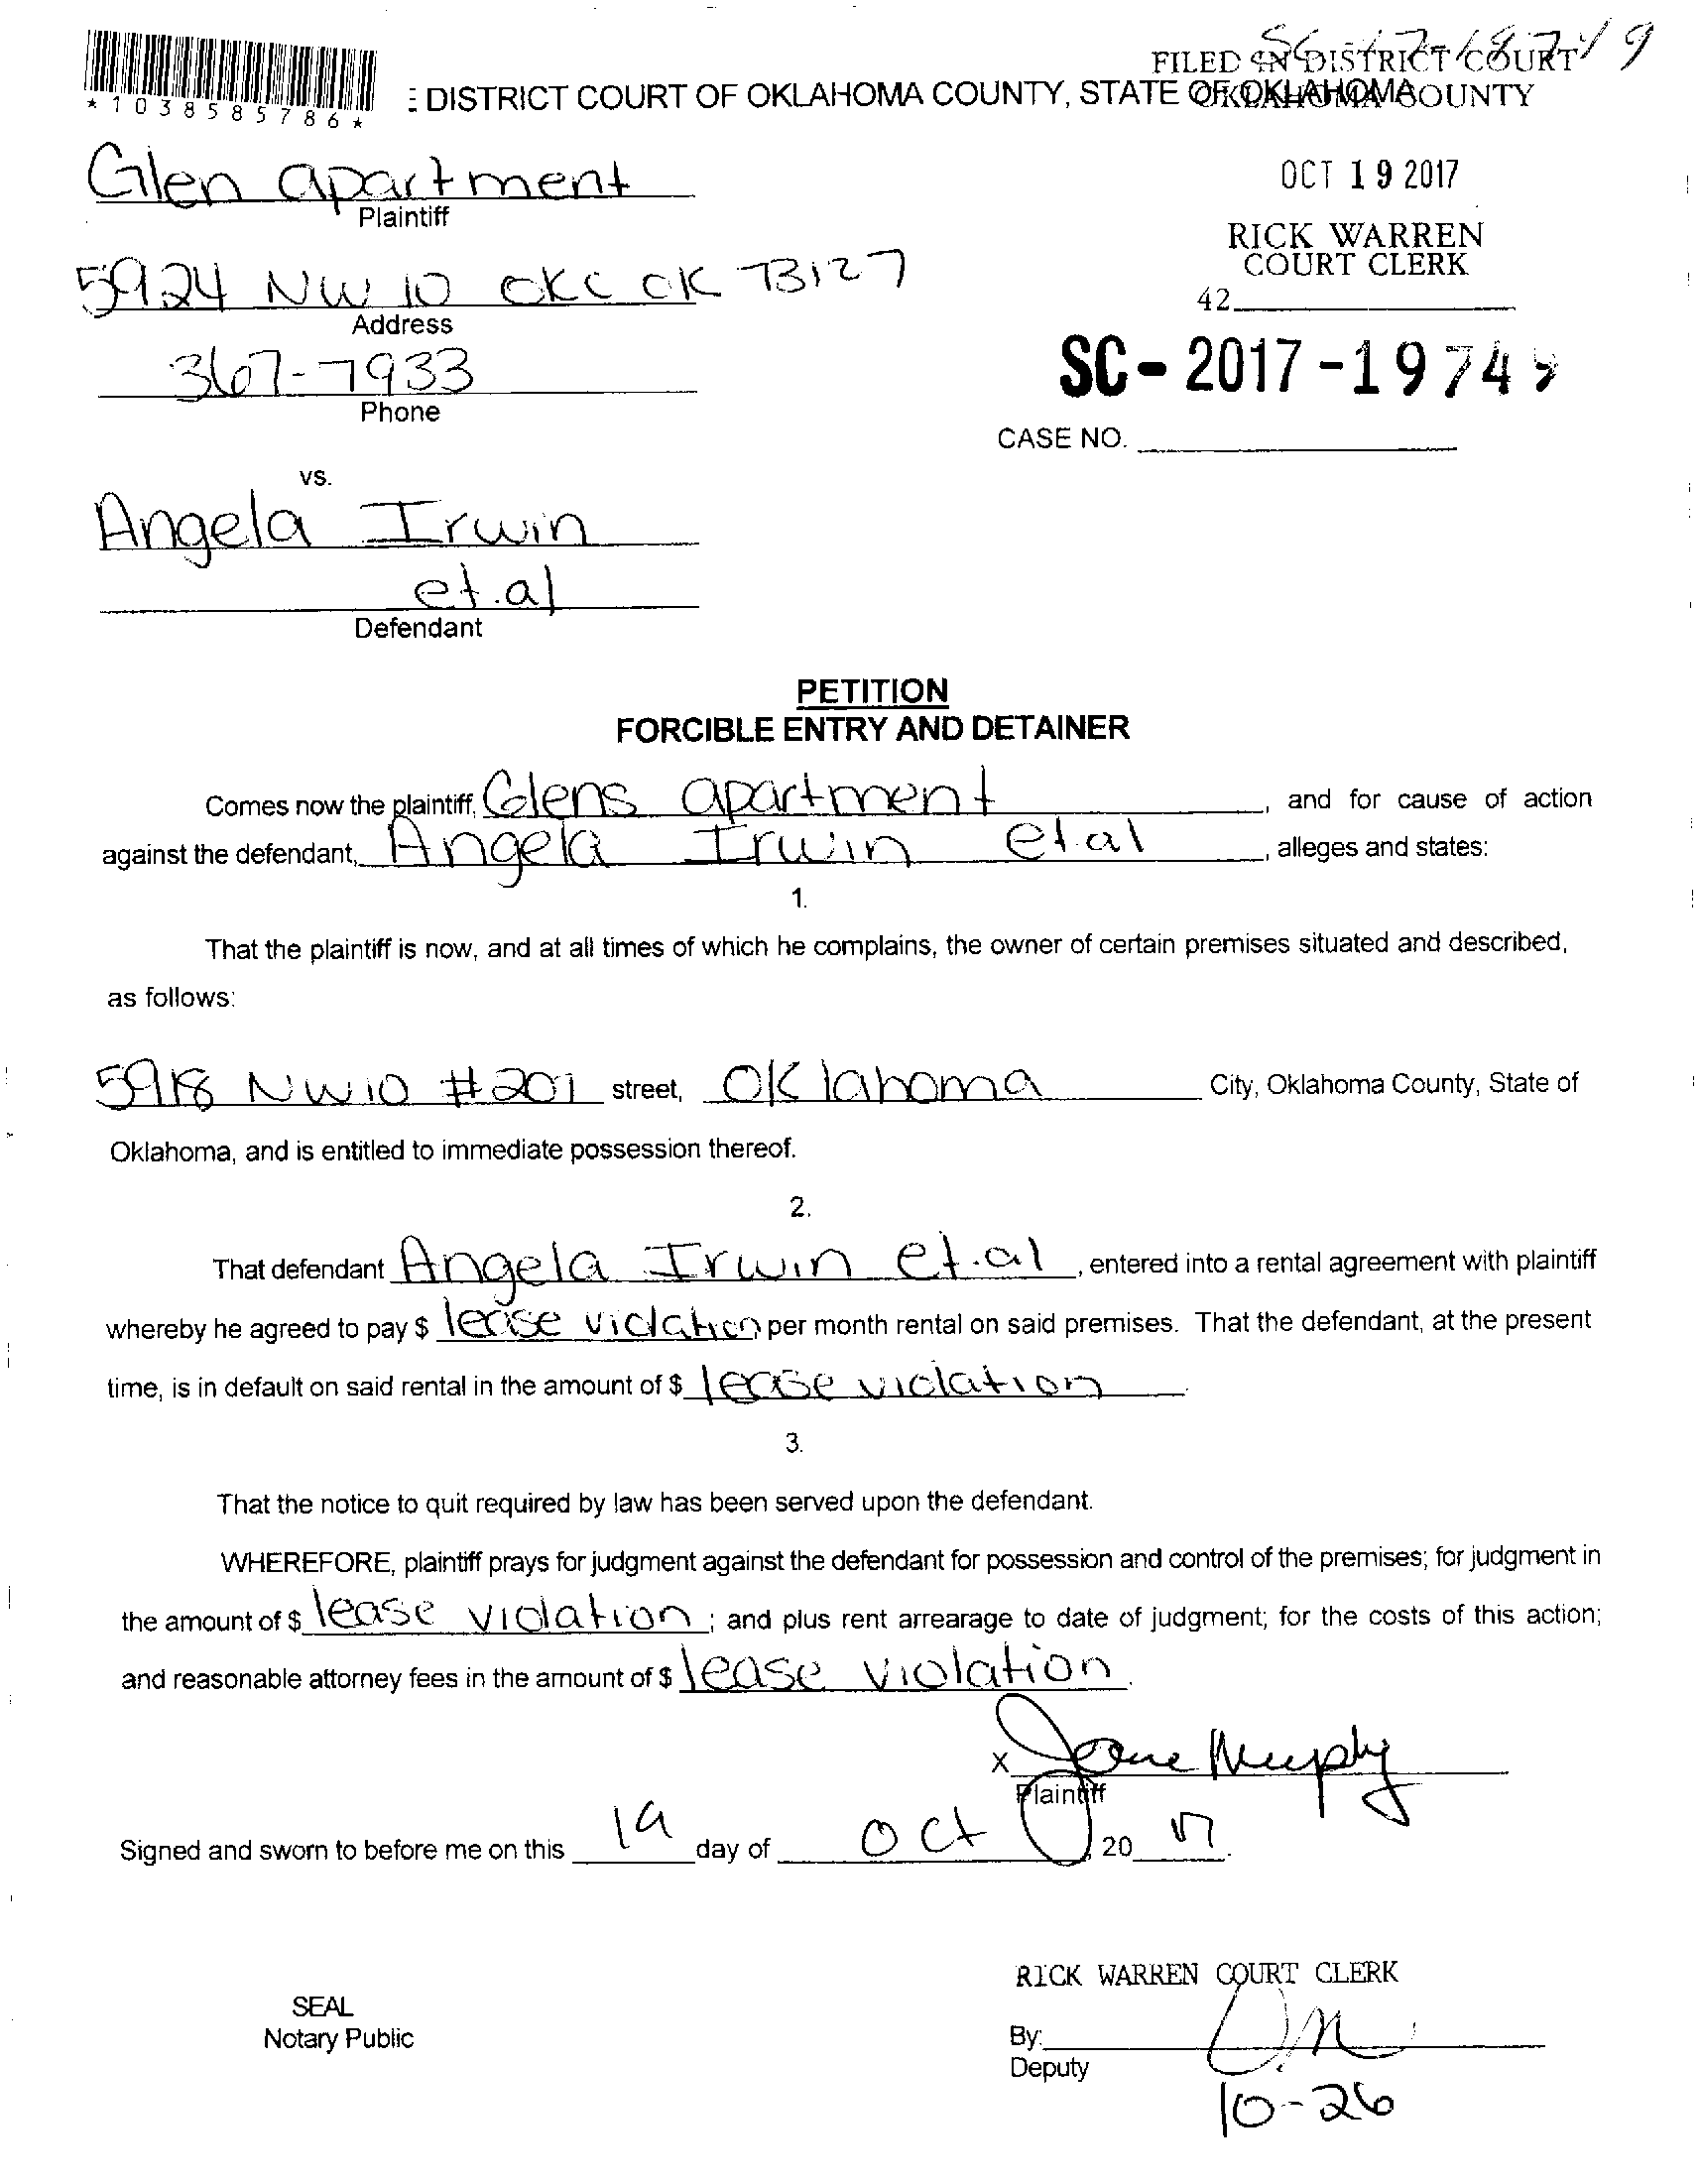 FILED IN DISTRICT COURT
OKLAHOMA COUNTY
*1038585786*
DISTRICT COURT OF OKLAHOMA COUNTY, STATE OF OKLAHOMA
Glen apartment
Plaintiff
OCT 19 2017
RICK WARREN
COURT CLERK
42
5924 NW 10 OKC OK 73127
Address
367-7933
Phone
SC-2017-1974
CASE NO.
vs.
Angela Irwin
et.al
Defendant
PETITION
FORCIBLE ENTRY AND DETAINER
Comes now the plaintiff, Glens apartment, and for cause of action
against the defendant, Angela Irwin et.al, alleges and states:
1.
That the plaintiff is now, and at all times of which he complains, the owner of certain premises situated and described,
as follows:
5918 NW 10 #201 street, Oklahoma City, Oklahoma County, State of
Oklahoma, and is entitled to immediate possession thereof.
2.
That defendant Angela Irwin et.al, entered into a rental agreement with plaintiff
whereby he agreed to pay $ lease violation per month rental on said premises. That the defendant, at the present
time, is in default on said rental in the amount of $ lease violation.
3.
That the notice to quit required by law has been served upon the defendant.
WHEREFORE, plaintiff prays for judgment against the defendant for possession and control of the premises; for judgment in
the amount of $ lease violation; and plus rent arrearage to date of judgment; for the costs of this action;
and reasonable attorney fees in the amount of $ lease violation.
X Murphy
Plaintiff
Signed and sworn to before me on this 19 day of Oct, 20 17.
RICK WARREN COURT CLERK
SEAL
Notary Public
By:
Deputy
10-26